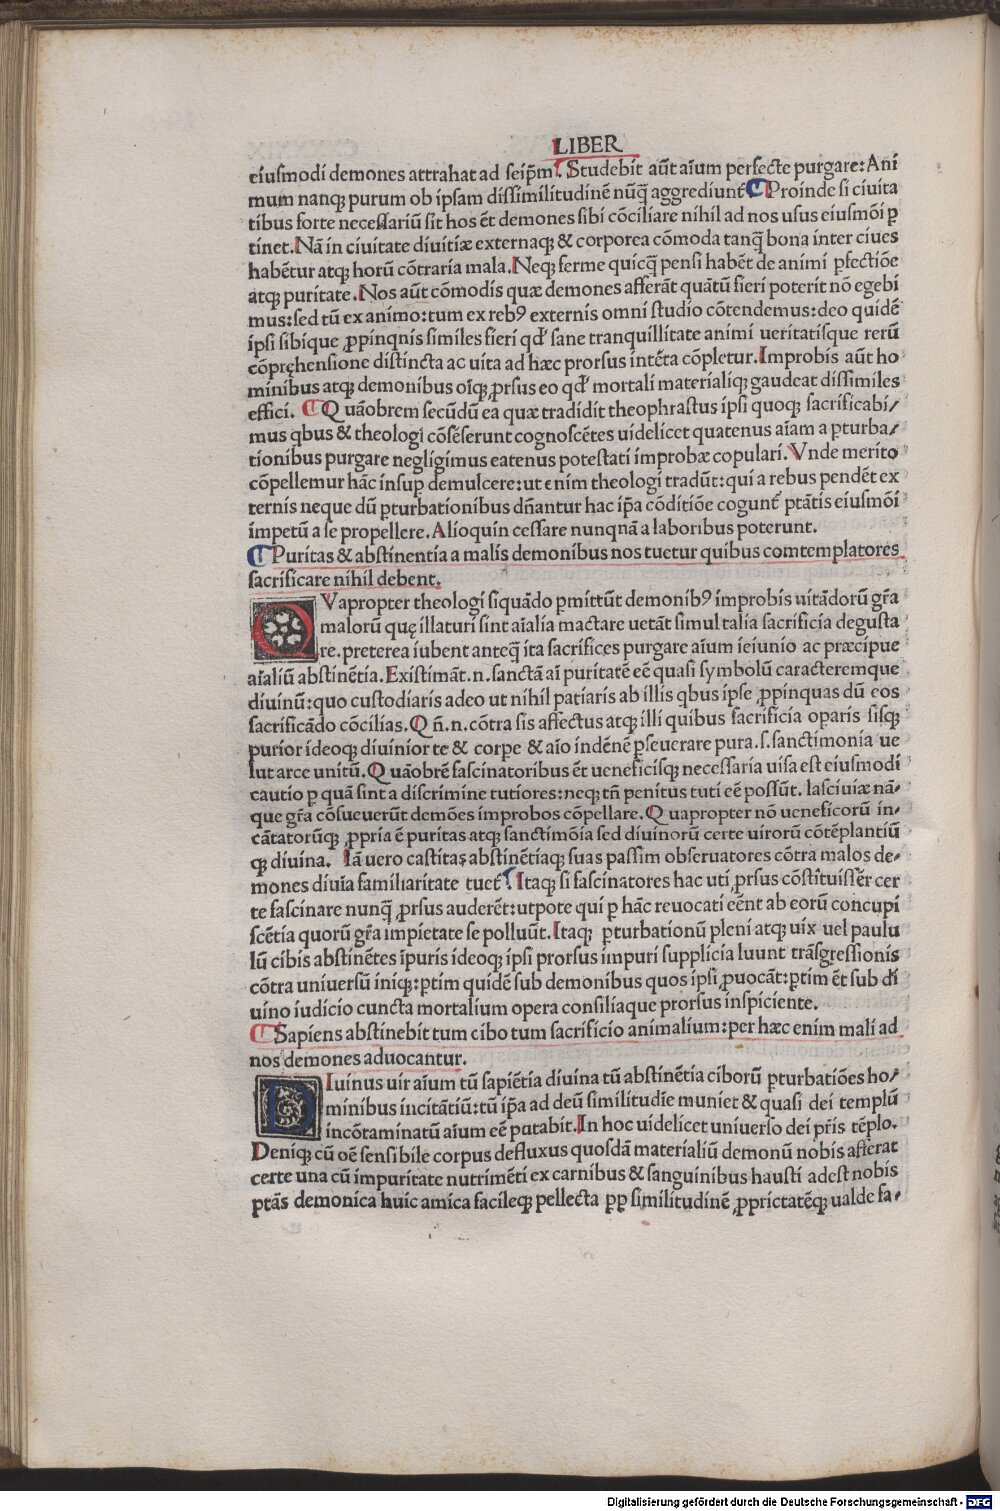 LIBER
eiusmodi demones attrahat ad seip̃m. Studebit aũt aĩum perfecte purgare: Ani
mum nanq; purum ob ipsam dissimilitudinẽ nũq̃ aggrediunt᷑ Proinde si ciuita
tibus forte necessariũ sit hos ẽt demones sibi cõciliare nihil ad nos usus eiusmõi ꝑ
tinet. Nã in ciuitate diuitiæ externaq; & corporea cõmoda tanq̃ bona inter ciues
habẽtur atq; horũ cõtraria mala. Neq; ferme quicq̃ pensi habẽt de animi ꝑfectiõe
atq; puritate. Nos aũt cõmodis quæ demones afferãt quãtũ fieri poterit nõ egebi
mus: sed tũ ex animo: tum ex rebꝰ externis omni studio cõtendemus: deo quidẽ
ipsi sibique ꝓpinqnis similes fieri qđ sane tranquillitate animi ueritatisque rerũ
cõpręhensione distincta ac uita ad hæc prorsus intẽta cõpletur. Improbis aũt ho
minibus atq; demonibus oĩq; ꝓrsus eo qđ mortali materialiq; gaudeat dissimiles
effici. Q uãobrem secũdũ ea quæ tradidit theophrastus ipsi quoq; sacrificabi/
mus qbus & theologi cõsẽserunt cognoscẽtes uidelicet quatenus aĩam a ꝑturba/
tionibus purgare negligimus eatenus potestati improbæ copulari. Vnde merito
cõpellemur hãc insuꝑ demulcere: ut enim theologi tradũt: qui a rebus pendẽt ex
ternis neque dũ ꝑturbationibus dñantur hac ip̃a cõditiõe cogunt᷑ ptãtis eiusmõi
impetũ a se propellere. Alioquin cessare nunqnã a laboribus poterunt.
Puritas & abstinentia a malis demonibus nos tuetur quibus comtemplatores
sacrificare nihil debent.
Q Vapropter theologi siquãdo ꝑmittũt demonibꝰ improbis uitãdorũ gr̃a
malorũ quę illaturi sint aĩalia mactare uetãt simul talia sacrificia degusta
re. preterea iubent anteq̃ ita sacrifices purgare aĩum ieiunio ac præcipue
aĩaliũ abstinẽtia. Existimãt .n. sanctã aĩ puritatẽ eẽ quasi symbolũ caracteremque
diuinũ: quo custodiaris adeo ut nihil patiaris ab illis qbus ipse ꝓpinquas dũ eos
sacrificãdo cõcilias. Q ñ .n. cõtra sis affectus atq; illi quibus sacrificia oparis sisq;
purior ideoq; diuinior te & corꝑe & aĩo indẽnẽ ꝑseuerare pura .s. sanctimonia ue
lut arce unitũ. Q uãobrẽ fascinatoribus ẽt ueneficisq; necessaria uisa est eiusmodi
cautio ꝑ quã sint a discrimine tutiores: neq; tñ penitus tuti eẽ possũt. lasciuiæ nã-
que gr̃a cõsueuerũt demões improbos cõpellare. Q uapropter nõ ueneficorũ in-
cãtatorũq; ꝓpria ẽ puritas atq; sanctimõia sed diuinorũ certe uirorũ cõtẽplantiũ
q; diuina. Iã uero castitas abstinẽtiaq; suas passim obseruatores cõtra malos de-
mones diuĩa familiaritate tuet᷑. Itaq; si fascinatores hac uti ꝓrsus cõstituissẽr cer
te fascinare nunq̃ ꝓrsus auderẽt: utpote qui ꝑ hãc reuocati eẽnt ab eorũ concupi
scẽtia quorũ gr̃a impietate se polluũt. Itaq; ꝑturbationũ pleni atq; uix uel paulu
lũ cibis abstinẽtes ĩpuris ideoq; ipsi prorsus impuri supplicia luunt trãsgressionis
cõtra uniuersũ iniq;: ꝑtim quidẽ sub demonibus quos ipsi ꝓuocãt: ꝑtim ẽt sub di
uino iudicio cuncta mortalium opera consiliaque prorsus inspiciente.
Sapiens abstinebit tum cibo tum sacrificio animalium: per hæc enim mali ad
nos demones aduocantur.
D Iuinus uir aĩum tũ sapiẽtia diuina tũ abstinẽtia ciborũ ꝑturbatiões ho/
minibus incitãtiũ: tũ ip̃a ad deũ similitudĩe muniet & quasi dei templũ
incõtaminatũ aĩum eẽ putabit. In hoc uidelicet uniuerso dei pr̃is tẽplo.
Deniq; cũ oẽ sensibile corpus defluxus quosdã materialiũ demonũ nobis afferat
certe una cũ impuritate nutrimẽti ex carnibus & sanguinibus hausti adest nobis
ptãs demonica huic amica facileq; pellecta ꝓꝑ similitudinẽ ꝓprictatẽq; ualde fa-
Digitalisierung gefördert durch die Deutsche Forschungsgemeinschaft - DFG